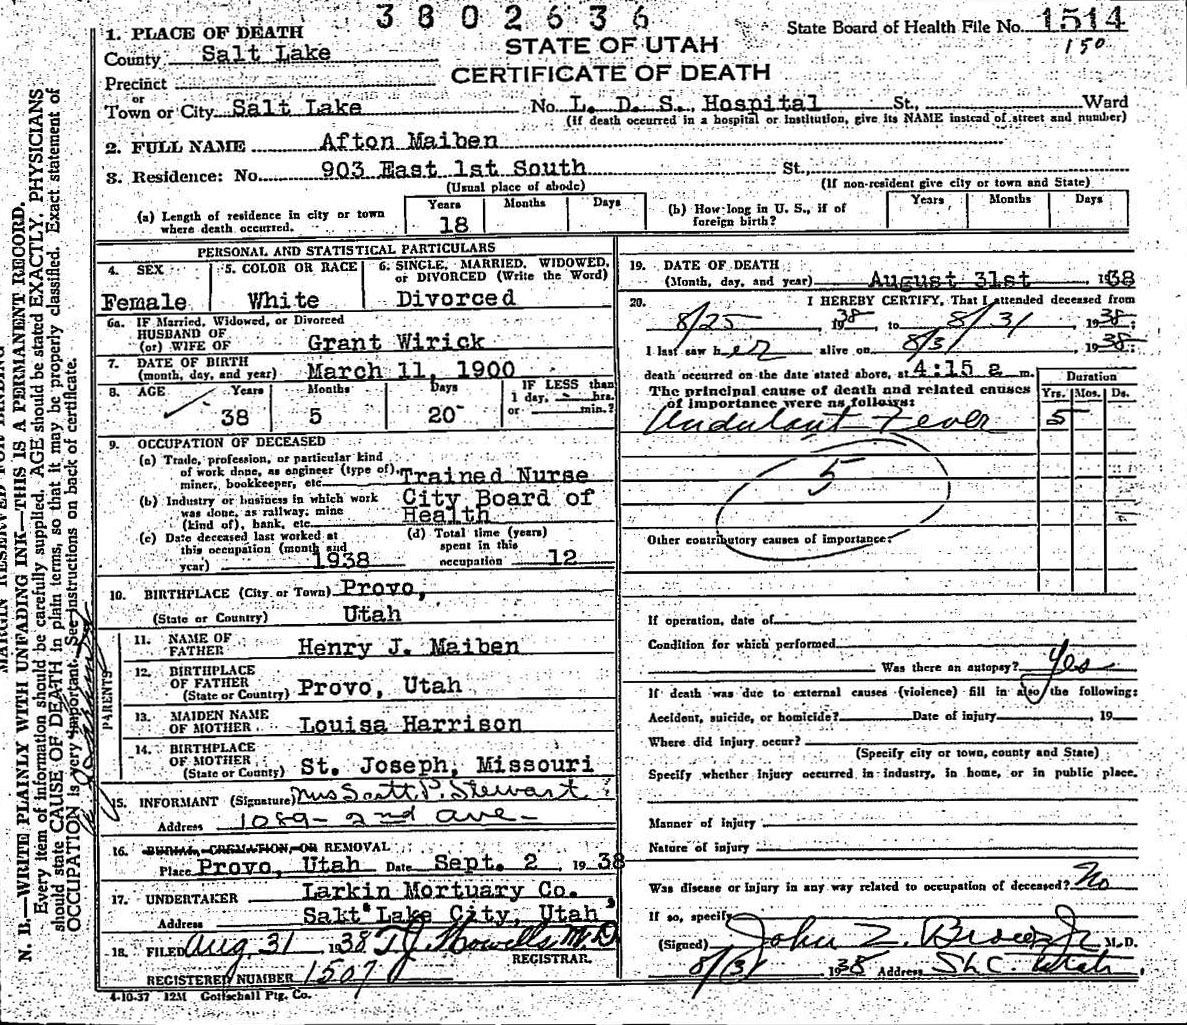 3802636
1. PLACE OF DEATH
State Board of Health File No. 1514
150
County Salt Lake
STATE OF UTAH
CERTIFICATE OF DEATH
Precinct
or
Town or City Salt Lake No. L. D. S. Hospital St., Ward
(If death occurred in a hospital or institution, give its NAME instead of street and number)
2. FULL NAME Afton Maiben
3. Residence: No. 903 East 1st South St.,
(Usual place of abode) (If non-resident give city or town and State)
(a) Length of residence in city or town where death occurred. Years 18 Months Days
(b) How long in U. S., if of foreign birth? Years Months Days
PERSONAL AND STATISTICAL PARTICULARS
4. SEX Female
5. COLOR OR RACE White
6. SINGLE, MARRIED, WIDOWED, or DIVORCED (Write the Word) Divorced
6a. IF Married, Widowed, or Divorced
HUSBAND OF
(or) WIFE OF Grant Wirick
7. DATE OF BIRTH
(month, day, and year) March 11, 1900
8. AGE Years 38 Months 5 Days 20
IF LESS than 1 day, hrs. or min.?
9. OCCUPATION OF DECEASED
(a) Trade, profession, or particular kind
of work done, as engineer (type of),
miner, bookkeeper, etc. Trained Nurse
(b) Industry or business in which work
was done, as railway, mine
(kind of), bank, etc. City Board of Health
(c) Date deceased last worked at
this occupation (month and
year) 1938
(d) Total time (years)
spent in this
occupation 12
10. BIRTHPLACE (City or Town) Provo,
(State or Country) Utah
PARENTS
11. NAME OF FATHER Henry J. Maiben
12. BIRTHPLACE OF FATHER
(State or Country) Provo, Utah
13. MAIDEN NAME OF MOTHER Louisa Harrison
14. BIRTHPLACE OF MOTHER
(State or Country) St. Joseph, Missouri
15. INFORMANT (Signature) Mrs Scott P. Stewart
Address 1089 - 2nd Ave -
16. BURIAL, CREMATION, OR REMOVAL
Place Provo, Utah Date Sept. 2, 1938
17. UNDERTAKER Larkin Mortuary Co.
Address Sakt Lake City, Utah
18. FILED Aug 31 1938 T. J. Howells, M.D.
REGISTRAR.
REGISTERED NUMBER 1507
4-10-37 12M Gottschall Ptg. Co.
19. DATE OF DEATH
(Month, day, and year) August 31st, 1938
20. I HEREBY CERTIFY, That I attended deceased from
8/25, 1938 to 8/31, 1938;
I last saw her alive on 8/31, 1938
death occurred on the date stated above, at 4:15 a m.
The principal cause of death and related causes
of importance were as follows:
Duration
Yrs. Mos. Ds.
Undulant Fever 5
5
Other contributory causes of importance:
If operation, date of
Condition for which performed
Was there an autopsy? Yes
If death was due to external causes (violence) fill in also the following:
Accident, suicide, or homicide? Date of injury, 19
Where did injury occur?
(Specify city or town, county and State)
Specify whether injury occurred in industry, in home, or in public place.
Manner of injury
Nature of injury
Was disease or injury in any way related to occupation of deceased? No
If so, specify
(Signed) John Z. Brown Jr M.D.
8/31 1938 Address S.L.C. Utah
N. B.—WRITE PLAINLY WITH UNFADING INK—THIS IS A PERMANENT RECORD.
Every item of information should be carefully supplied. AGE should be stated EXACTLY. PHYSICIANS
should state CAUSE OF DEATH in plain terms, so that it may be properly classified. Exact statement of
OCCUPATION is very important. See instructions on back of certificate.